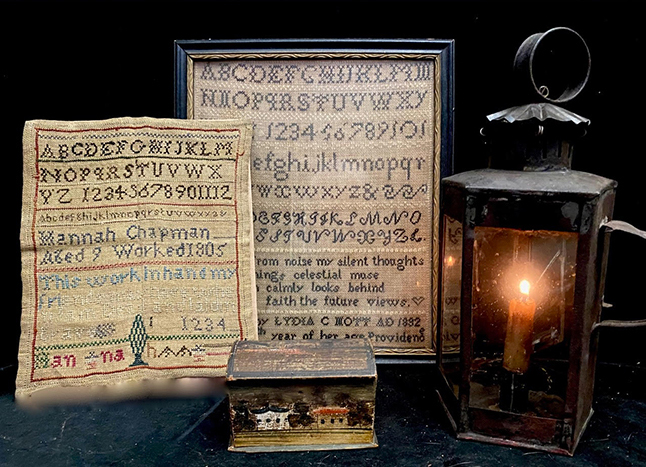 ABCDEFGHIJKLM
NOPQRSTUVWX
YZ 123456789 10 11 12
abcdefghijklmnopqrstuvwxyz&
Hannah Chapman
Aged 9 Worked 1805
This work in hand my
fri
1 1234
Han na
ABCDEFGHIJKLM
NOPQRSTUVWXY
123456789101
defghijklmnopqr
vwxyz&
DEFGHIJKLMNO
STUVWXYZ
from noise my silent thoughts
celestial muse
calmly looks behind
faith the future views
LYDIA C MOTT AD 1832
year of her age Providenc